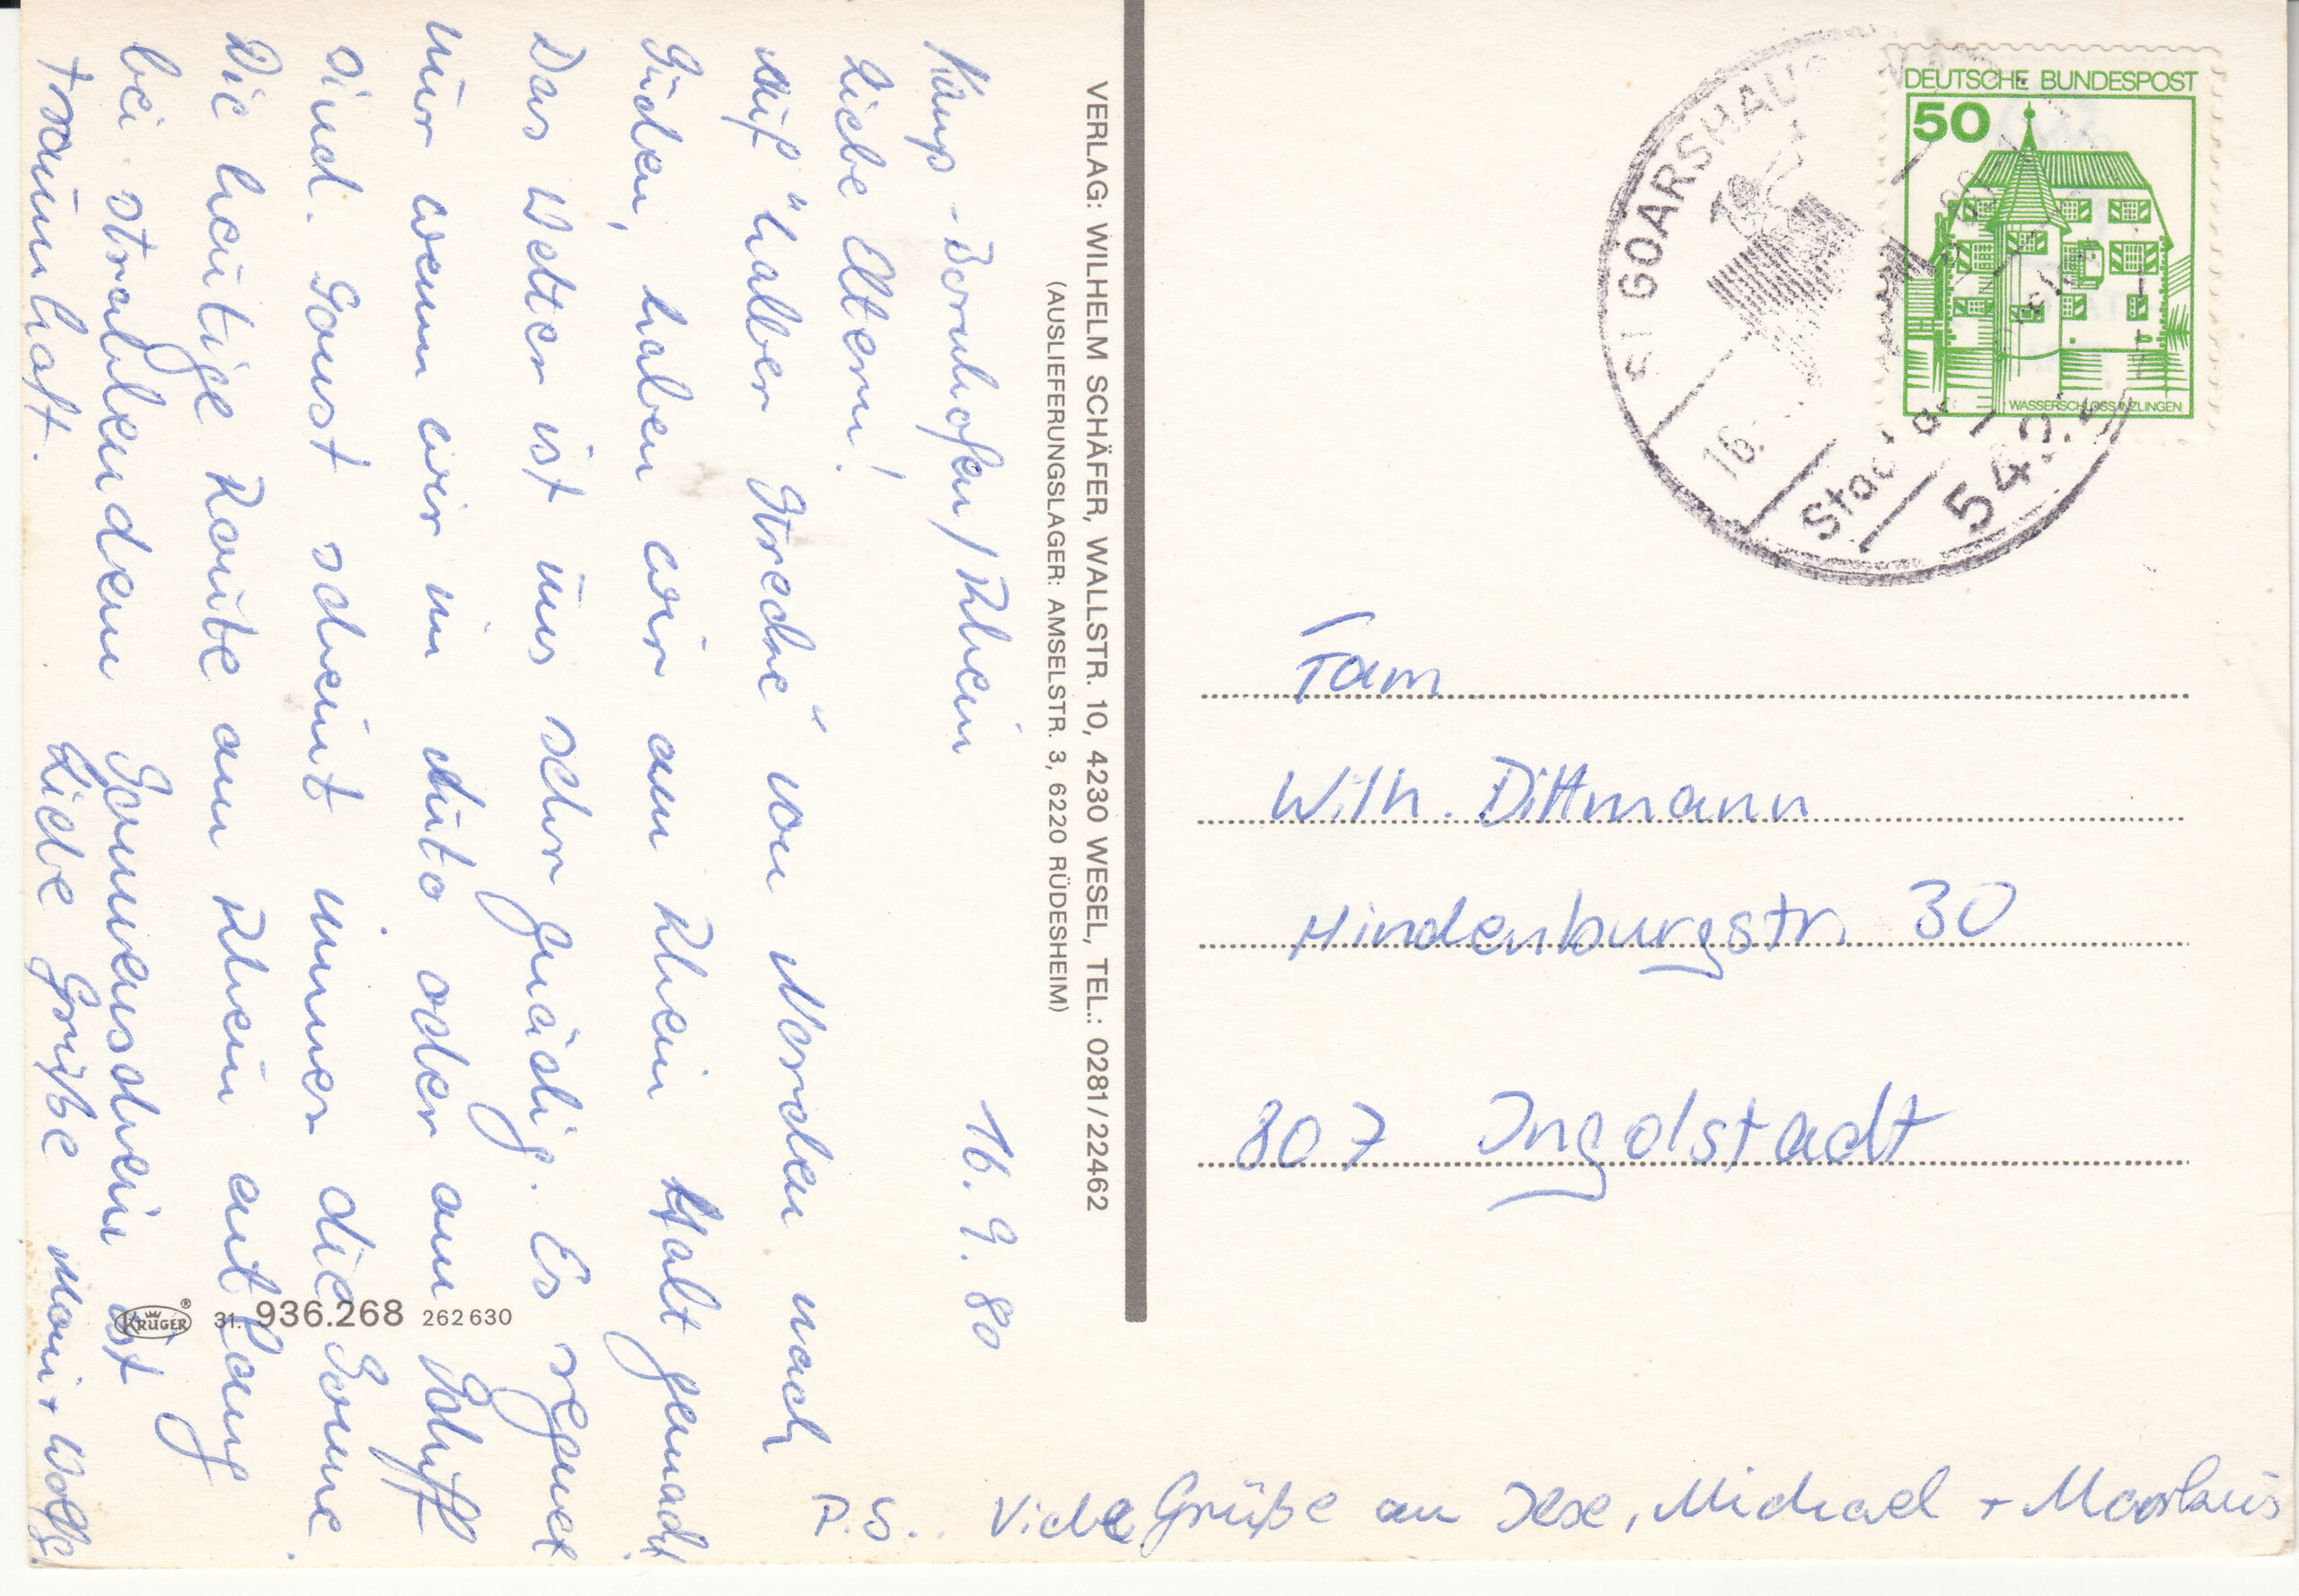 Kamp-Bornhofen/Rhein 16.9.80
Liebe Eltern!
Auf "halber Strecke" von Norden nach
Süden, haben wir am Rhein Halt gemacht.
Das Wetter ist uns sehr gnädig. Es regnet
nur wenn wir im Auto oder am Schiff
sind. Sonst scheint immer die Sonne.
Die heutige Route am Rhein entlang
bei strahlendem Sonnenschein ist
traumhaft. Liebe Grüße Moni + Wolfg.
P.S.: Viele Grüße an Ilse, Michael + Markus
VERLAG: WILHELM SCHÄFER, WALLSTR. 10, 4230 WESEL, TEL.: 0281/22462
(AUSLIEFERUNGSLAGER: AMSELSTR. 3, 6220 RÜDESHEIM)
KRÜGER ® 31. 936.268 262 630
DEUTSCHE BUNDESPOST
50
WASSERSCHLOSS INZLINGEN
ST GOARSHAUS
16.
Fam.
Wilh. Dittmann
Hindenburgstr. 30
807 Ingolstadt